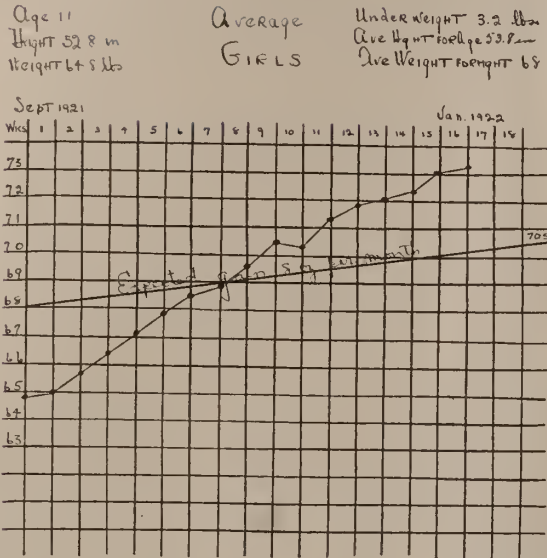 Age 11
Hight 52 8 in
Weight 64 8 lbs
Average
GIRLS
Under weight 3.2 lbs
Ave Hght for Age 53.8 in
Ave Weight for Hght 68
Sept 1921
Jan. 1922
Wks 1 2 3 4 5 6 7 8 9 10 11 12 13 14 15 16 17 18
73
72
71
70
69
68
67
66
65
64
63
Expected gain 8 oz per month